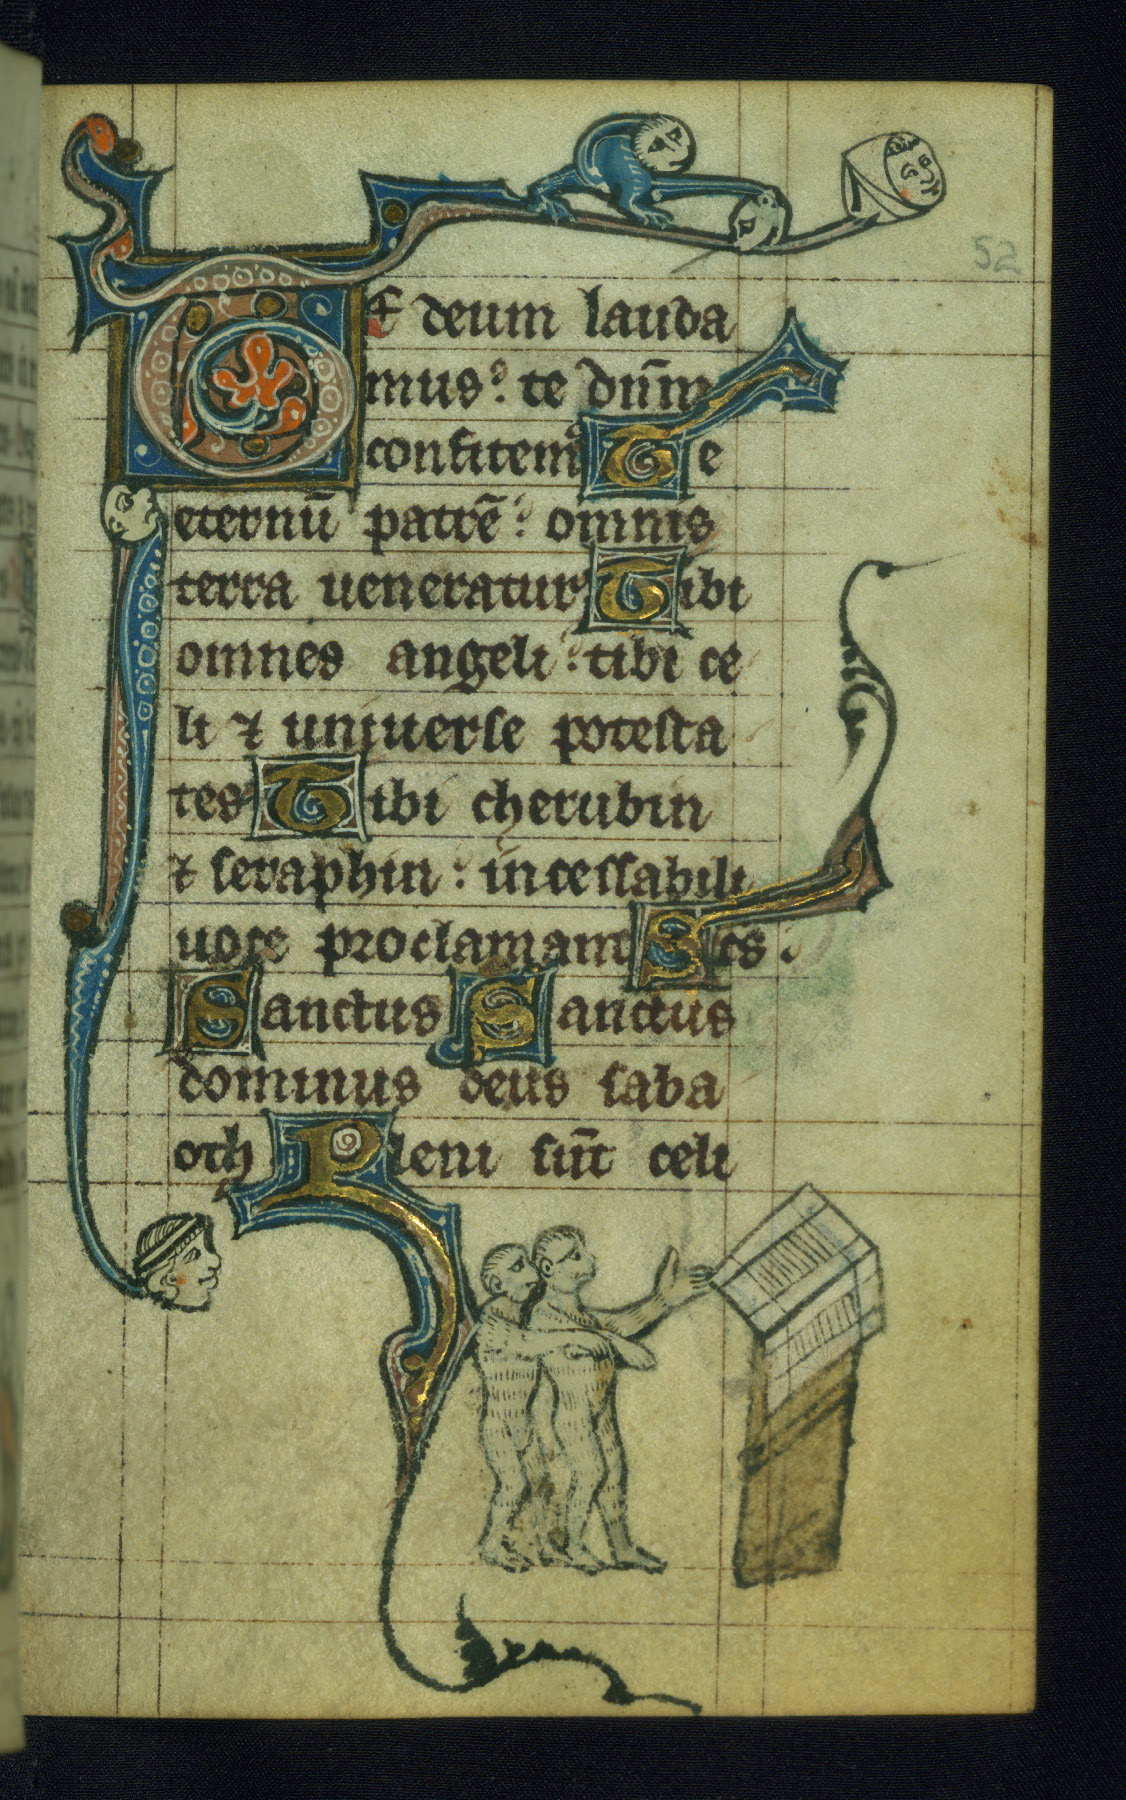 52
Te deum lauda
mus: te dn̄m
confitem᷑ Te
eternū patrē: omnis
terra ueneratur Tibi
omnes angeli: tibi ce
li ⁊ uniuerse potesta
tes Tibi cherubin
⁊ seraphin: incessabili
uoce proclamant Scs:
Sanctus Sanctus
dominus deus saba
oth Pleni sūt celi